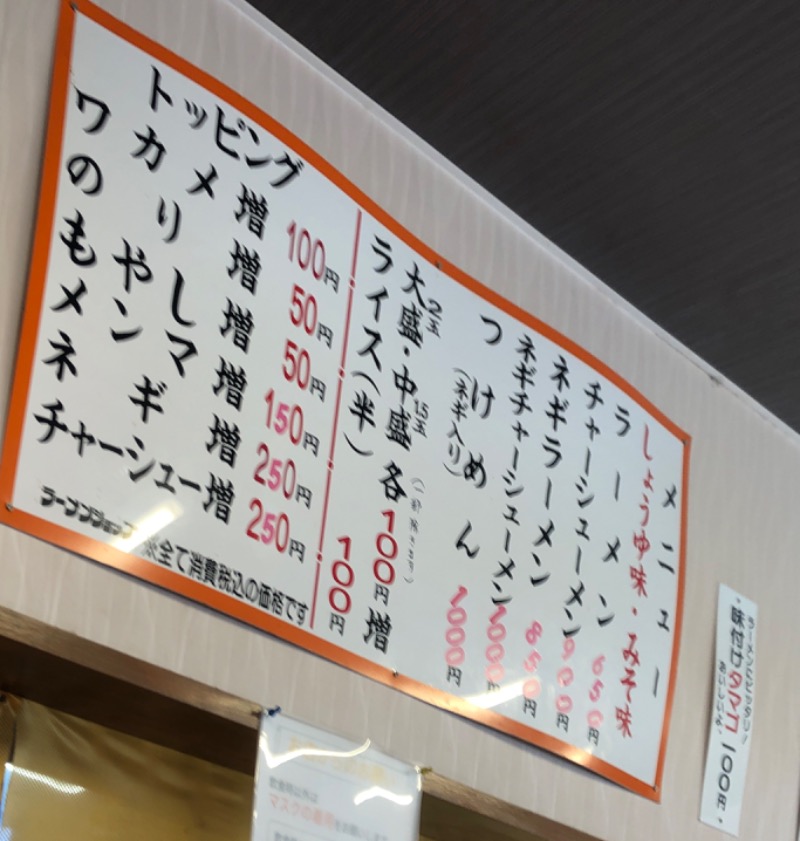 メニュー
しょうゆ味・みそ味
ラーメン 650円
チャーシューメン 900円
ネギラーメン 850円
ネギチャーシューメン 1000円
つけめん(ネギ入り) 1000円
大盛2玉・中盛1.5玉 各100円増
ライス(半) 100円
トッピング
ワカメ増 100円
のり増 50円
もやし増 50円
メンマ増 150円
ネギ増 250円
チャーシュー増 250円
※全て消費税込の価格です
ラーメンショップ
ラーメンにピッタリ!
味付けタマゴ 100円
おいしいよ
飲食時以外は
マスクの着用をお願いします